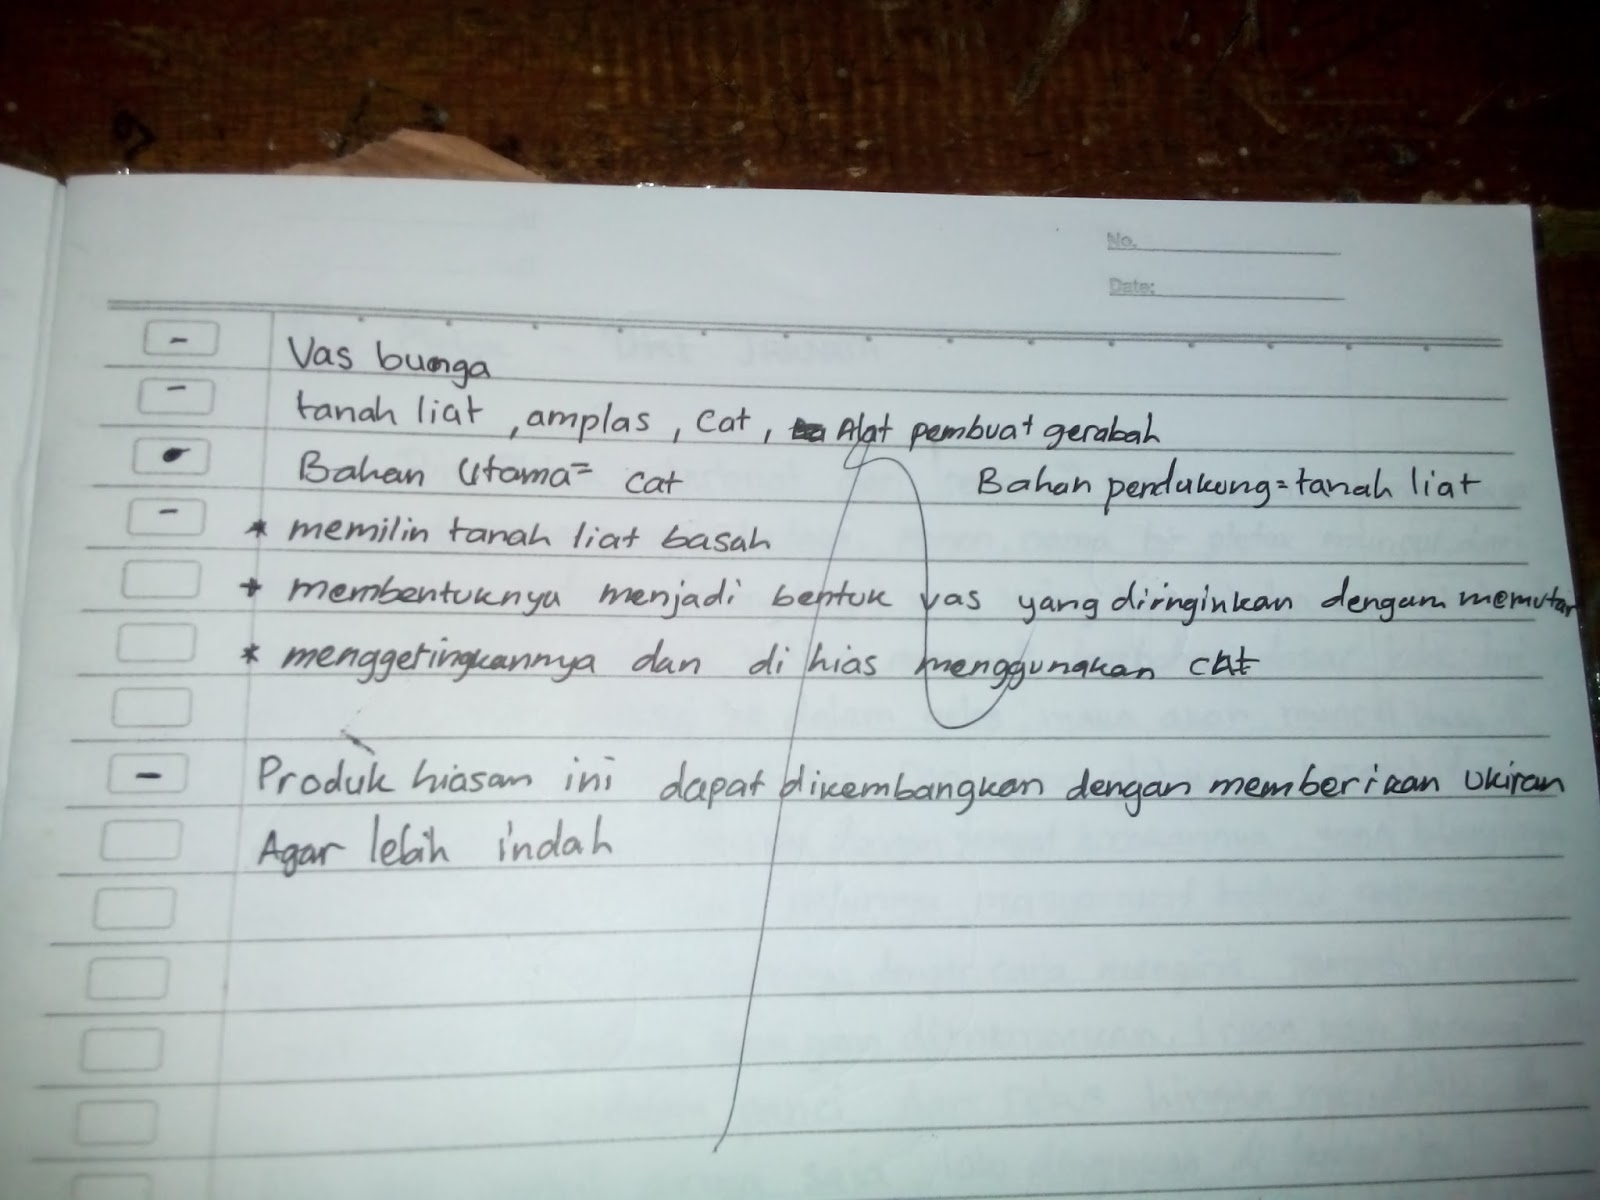 No.
Date:
- Vas bunga
- tanah liat, amplas, cat, Alat pembuat gerabah
Bahan Utama= cat Bahan pendukung=tanah liat
- * memilin tanah liat basah
* membentuknya menjadi bentuk vas yang diinginkan dengam memutar
* menggeringkannya dan di hias menggungkan cat
- Produk hiasan ini dapat dikembangkan dengan memberikan ukiran
Agar lebih indah